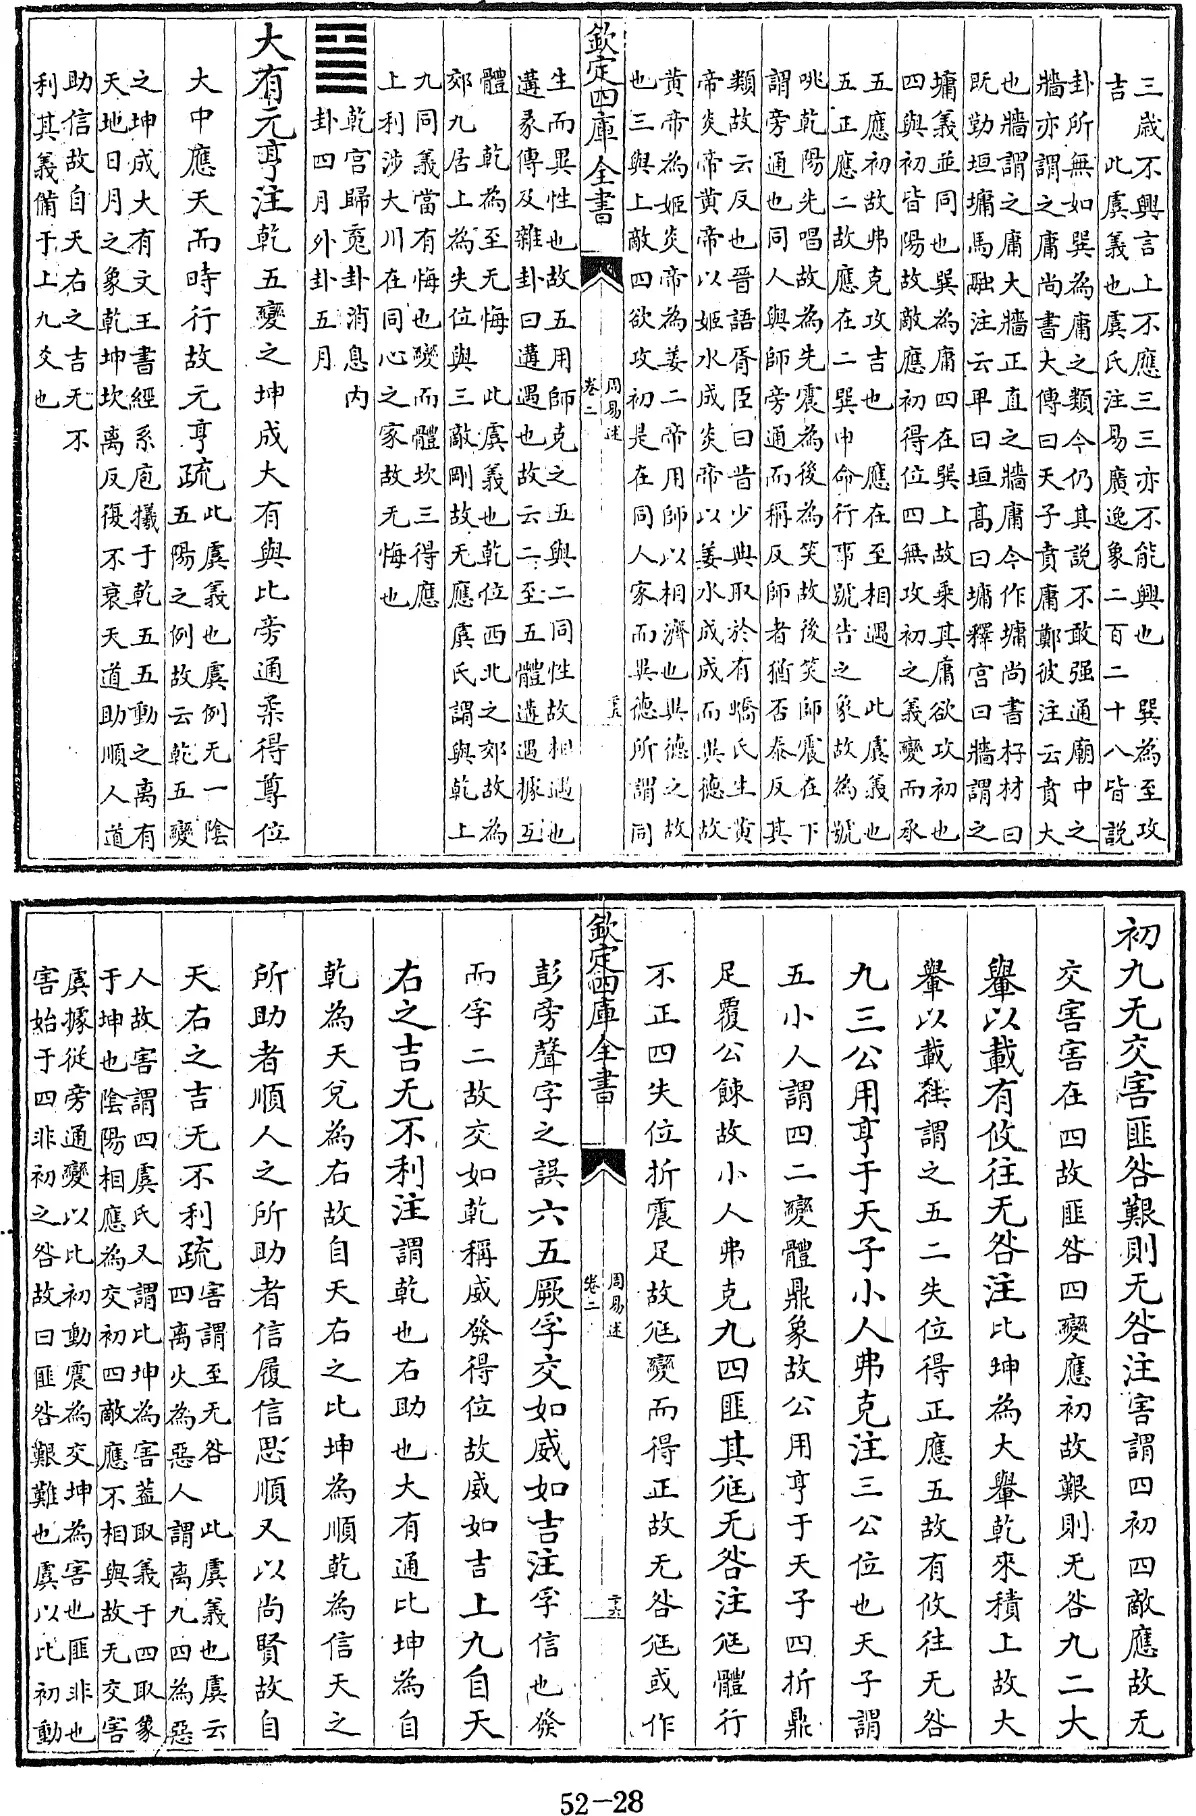 三歲不興言上不應三三亦不能興也　巽為至攻
吉　此虞義也虞氏注易廣逸象二百二十八皆說
卦所無如巽為庸之類今仍其說不敢强通廟中之
牆亦謂之庸尚書大傳曰天子賁庸鄭彼注云賁大
也牆謂之庸大牆正直之牆庸今作墉尚書杍材曰
既勤垣墉馬融注云卑曰垣高曰墉釋宫曰牆謂之
墉義並同也巽為庸四在巽上故乘其庸欲攻初也
四與初皆陽故敵應初得位四無攻初之義變而承
五應初故弗克攻吉也　應在至相遇　此虞義也
五正應二故應在二巽申命行事號告之象故為號
咷乾陽先唱故為先震為後為笑故後笑師震在下
謂旁通也同人與師旁通而稱反師者猶否泰反其
類故云反也晉語胥臣曰昔少典取於有蟜氏生黄
帝炎帝黄帝以姬水成炎帝以姜水成成而異德故
黄帝為姬炎帝為姜二帝用師以相濟也異德之故
也三與上敵四欲攻初是在同人家而異德所謂同
欽定四庫全書
周易述
卷二
二十五
生而異性也故五用師克之五與二同性故相遇也
遘彖傳及雜卦曰遘遇也故云二至五體遘遇據互
體　乾為至无悔　此虞義也乾位西北之郊故為
郊九居上為失位與三敵剛故无應虞氏謂與乾上
九同義當有悔也變而體坎三得應
上利涉大川在同心之家故无悔也
䷍乾宫歸䰟卦消息内
卦四月外卦五月
大有元亨注乾五變之坤成大有與比旁通柔得尊位
大中應天而時行故元亨疏此虞義也虞例无一陰
五陽之例故云乾五變
之坤成大有文王書經系庖犧于乾五五動之離有
天地日月之象乾坤坎離反復不衰天道助順人道
助信故自天右之吉无不
利其義備于上九爻也
初九无交害匪咎艱則无咎注害謂四初四敵應故无
交害害在四故匪咎四變應初故艱則无咎九二大
轝以載有攸往无咎注比坤為大轝乾來積上故大
轝以載往謂之五二失位得正應五故有攸往无咎
九三公用亨于天子小人弗克注三公位也天子謂
五小人謂四二變體鼎象故公用亨于天子四折鼎
足覆公餗故小人弗克九四匪其尫无咎注尫體行
不正四失位折震足故尫變而得正故无咎尫或作
欽定四庫全書
周易述
卷二
二十六
彭旁聲字之誤六五厥孚交如威如吉注孚信也發
而孚二故交如乾稱威發得位故威如吉上九自天
右之吉无不利注謂乾也右助也大有通比坤為自
乾為天兌為右故自天右之比坤為順乾為信天之
所助者順人之所助者信履信思順又以尚賢故自
天右之吉无不利疏害謂至无咎　此虞義也虞云
四離火為惡人謂離九四為惡
人故害謂四虞氏又謂比坤為害蓋取義于四取象
于坤也陰陽相應為交初四敵應不相與故无交害
虞據從旁通變以比初動震為交坤為害也匪非也
害始于四非初之咎故曰匪咎艱難也虞以比初動
52-28